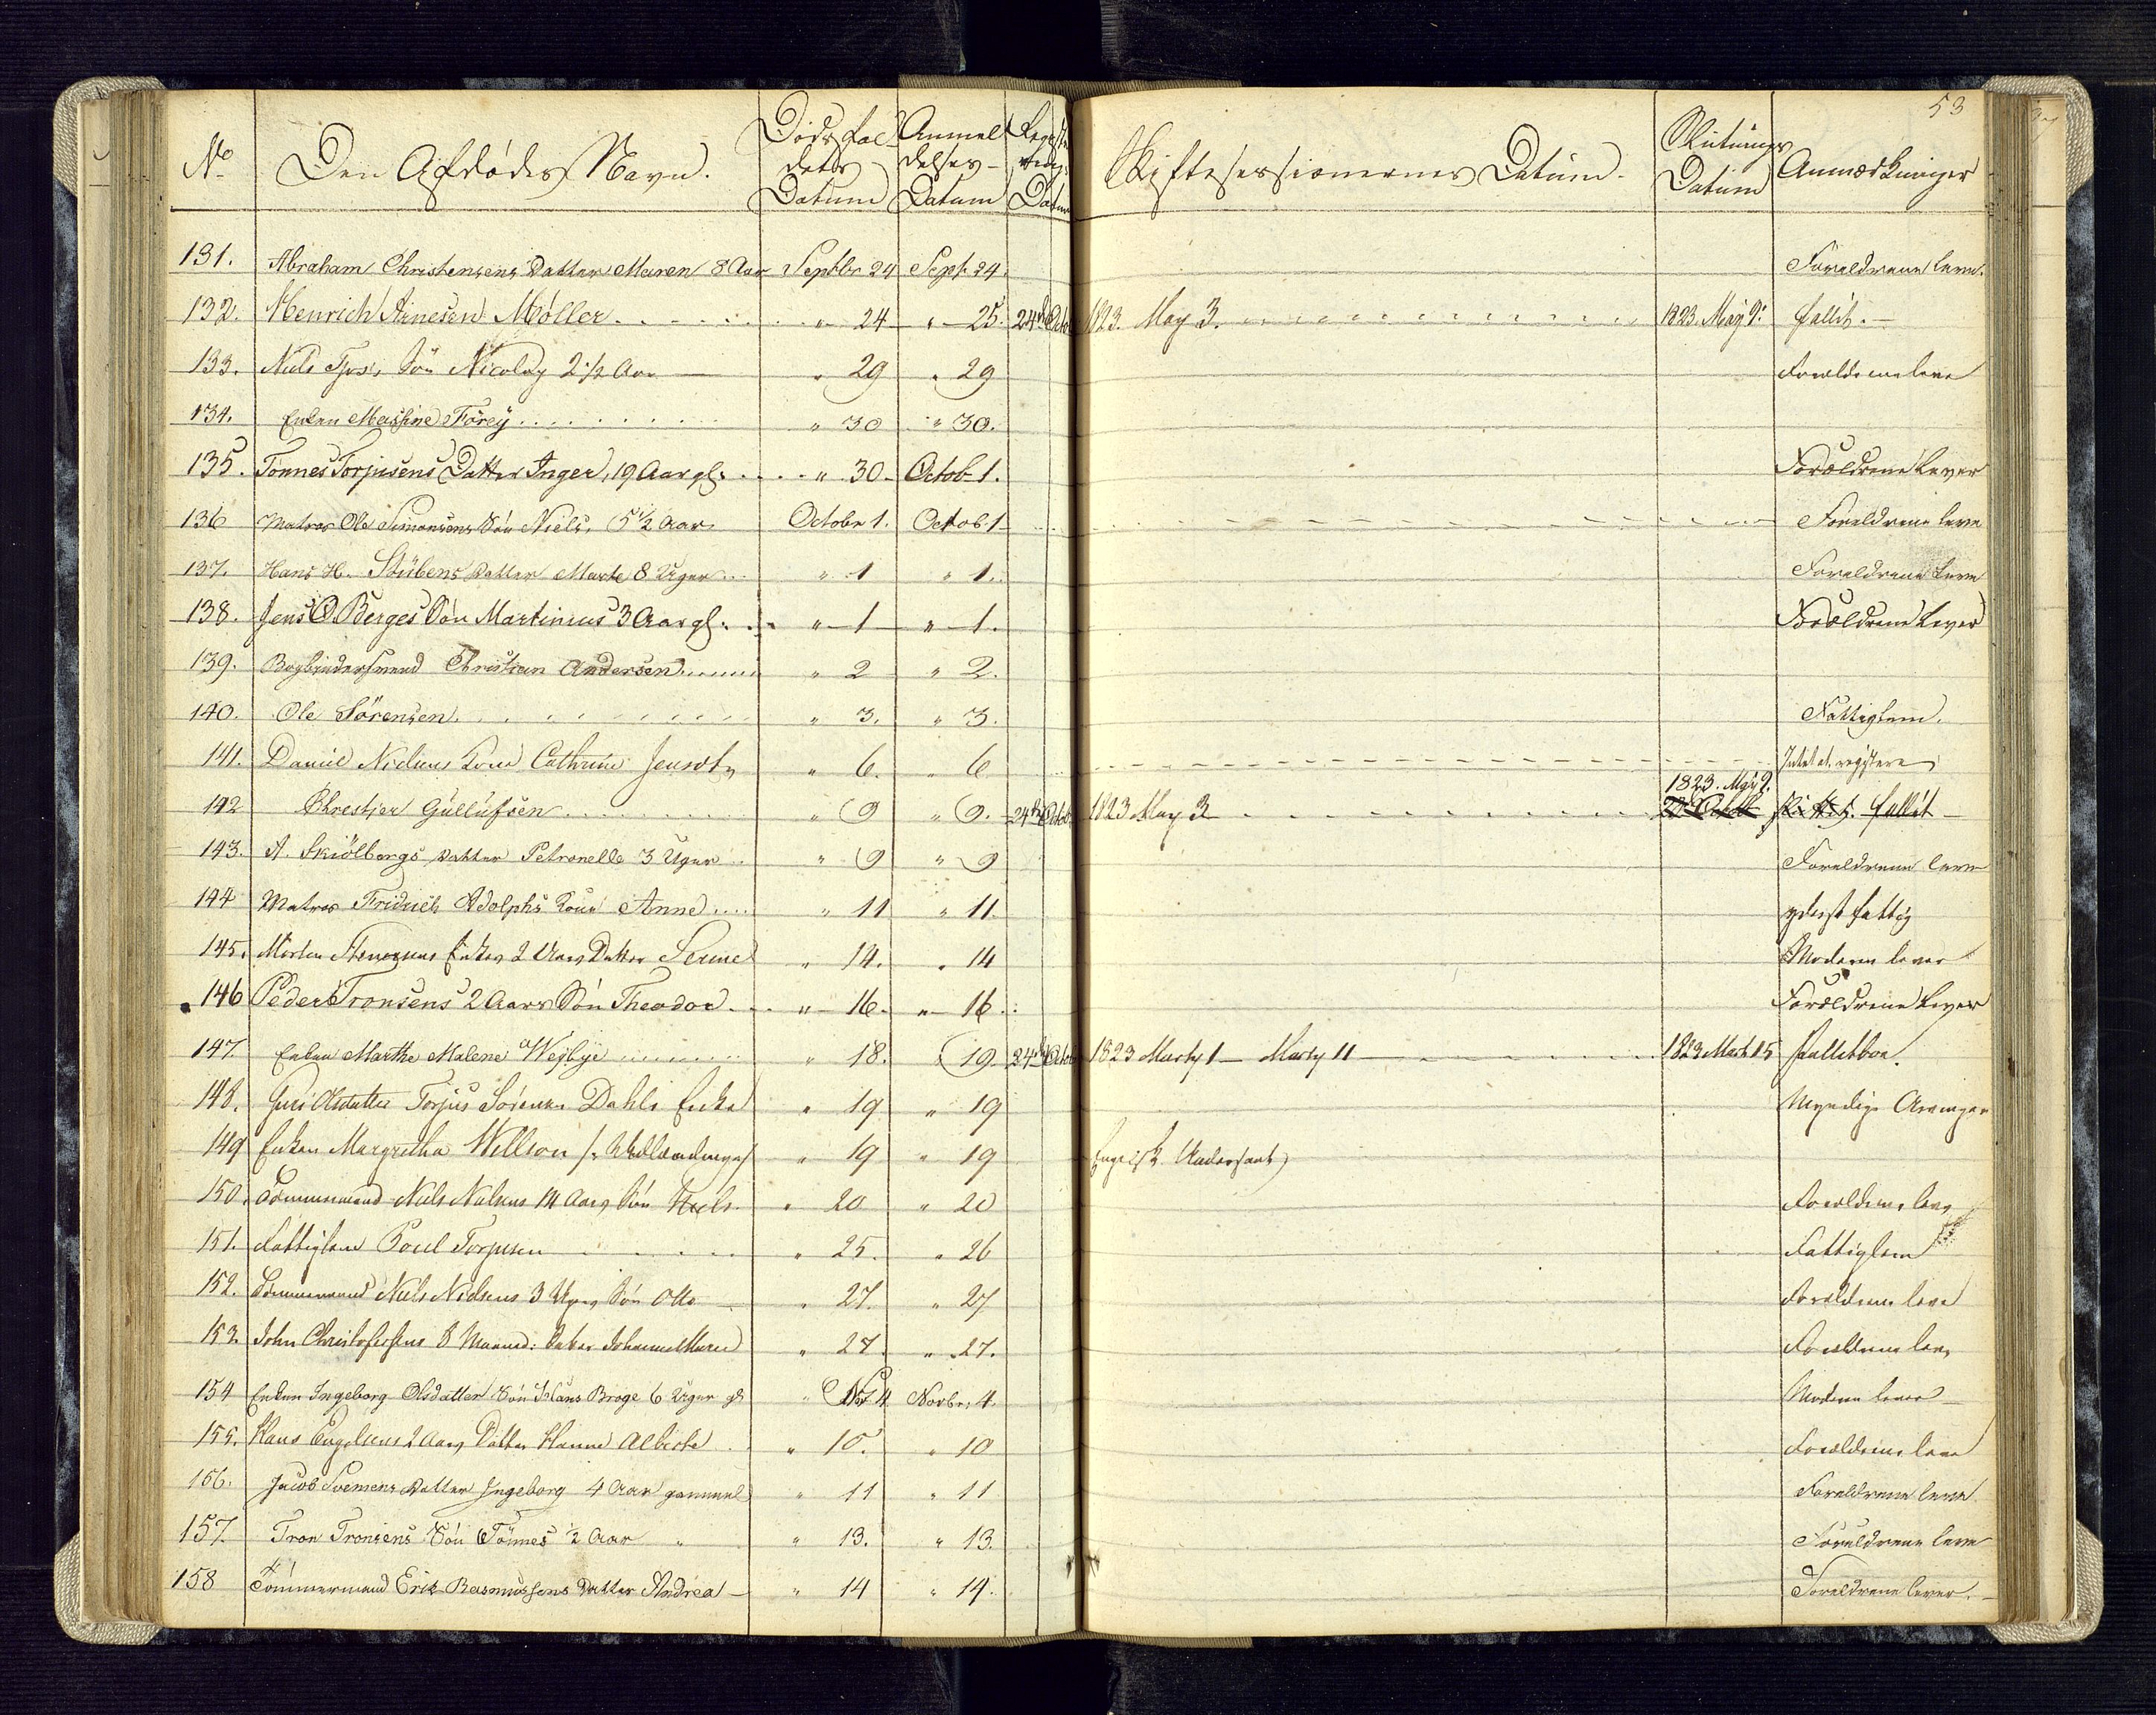 53
No Den Afdødes Navn. Dødsfaldets Datum Anmeldelses- Datum Datum Skiftesessionernes Datum. Slutnings Datum Anmærkninger
131. Abraham Christensens Datter Maren 8 Aar Septbr 24 Sept. 24 Forældrene leve.
132. Henrich Arnesen Møller " 24 " 25. 24 Octob 1823. May 3. 1823. May 9. fallit.
133. Niels Sön Nicolay 2 1/2 Aar " 29 " 29 Forældrene leve
134. Enken Maschine Förey " 30 " 30.
135. Tønnes Torjusens Datter Inger, 19 Aar gl. " 30 Octob 1. Forældrene Lever
136 Matros Ole Simonsens Sön Niels, 5 1/2 Aar Octobr 1. Octob 1 Forældrene leve
137. Hans H. Stübens Datter Marte 8 Uger " 1 " 1. Forældrene leve
138. Jens O Berges Sön Martinius 3 Aar gl. " 1 " 1. Forældrene Lever
139. Bogbindersvend Christian Andersen " 2 " 2.
140. Ole Sörensen " 3. " 3. Fattiglem.
141. Daniel Nielsens Kone Cathrine Jensdt " 6. " 6 Intet at registere
142 Chrestjer Gullufsen " 9 " 9. 24 Octob 1823 May 3 1823. May 9. fallit
143. A. Skiölbergs Datter Petronelle 3 Uger " 9 " 9 Forældrene leve
144 Matros Fridrich Adolphs Kone Anne " 11 " 11. yderst fattig
145. Morten Enkes 2 Aars Datter " 14. " 14 Moderen lever
146 Peder Tronsens 2 Aars Sön Theodor " 16. " 16. Forældrene Lever
147. Enken Marthe Malene Weybye " 18. " 19. 24 Octob 1823 Marty 1 Marty 11 1823 Mart 15 fallitboe.
148. Guri Olsdatter Torjus Sörensen Dahls Enke " 19 " 19 Myndige Arvinger
149 Enken Margretha Willson " 19 " 19 Engelsk Undersaat
150. Tömmermand Niels Nielsens 14 Aars Sön Niels " 20 " 20 Forældrene leve
151. Fattiglem Poul Torjusen " 25. " 26 Fattiglem
152. Tömmermand Niels Nielsens 3 Uger Sön Otto " 27. " 27 Forældrene leve
153. John Christophersens 8 Maaned: Datter Johanne Marie " 27. " 27. Forældrene leve
154 Enken Ingeborg Olsdatter Sön Hans Broge 6 Uger gl " Nov 4 Novbr. 4. Moderen lever
155. Hans Engelsens 2 Aars Datter Hanne Albertie " 10. " 10 Forældrene leve
156. Jacob Svensens Datter Ingeborg 4 Aar gammel " 11 " 11 Forældrene leve
157. Tron Tronsens Sön Tönnes 1/2 Aar " " 13. " 13. Forældrene leve
158 Tömmermand Erik Rasmussens Datter Andrea " 14 " 14. Forældrene lever.